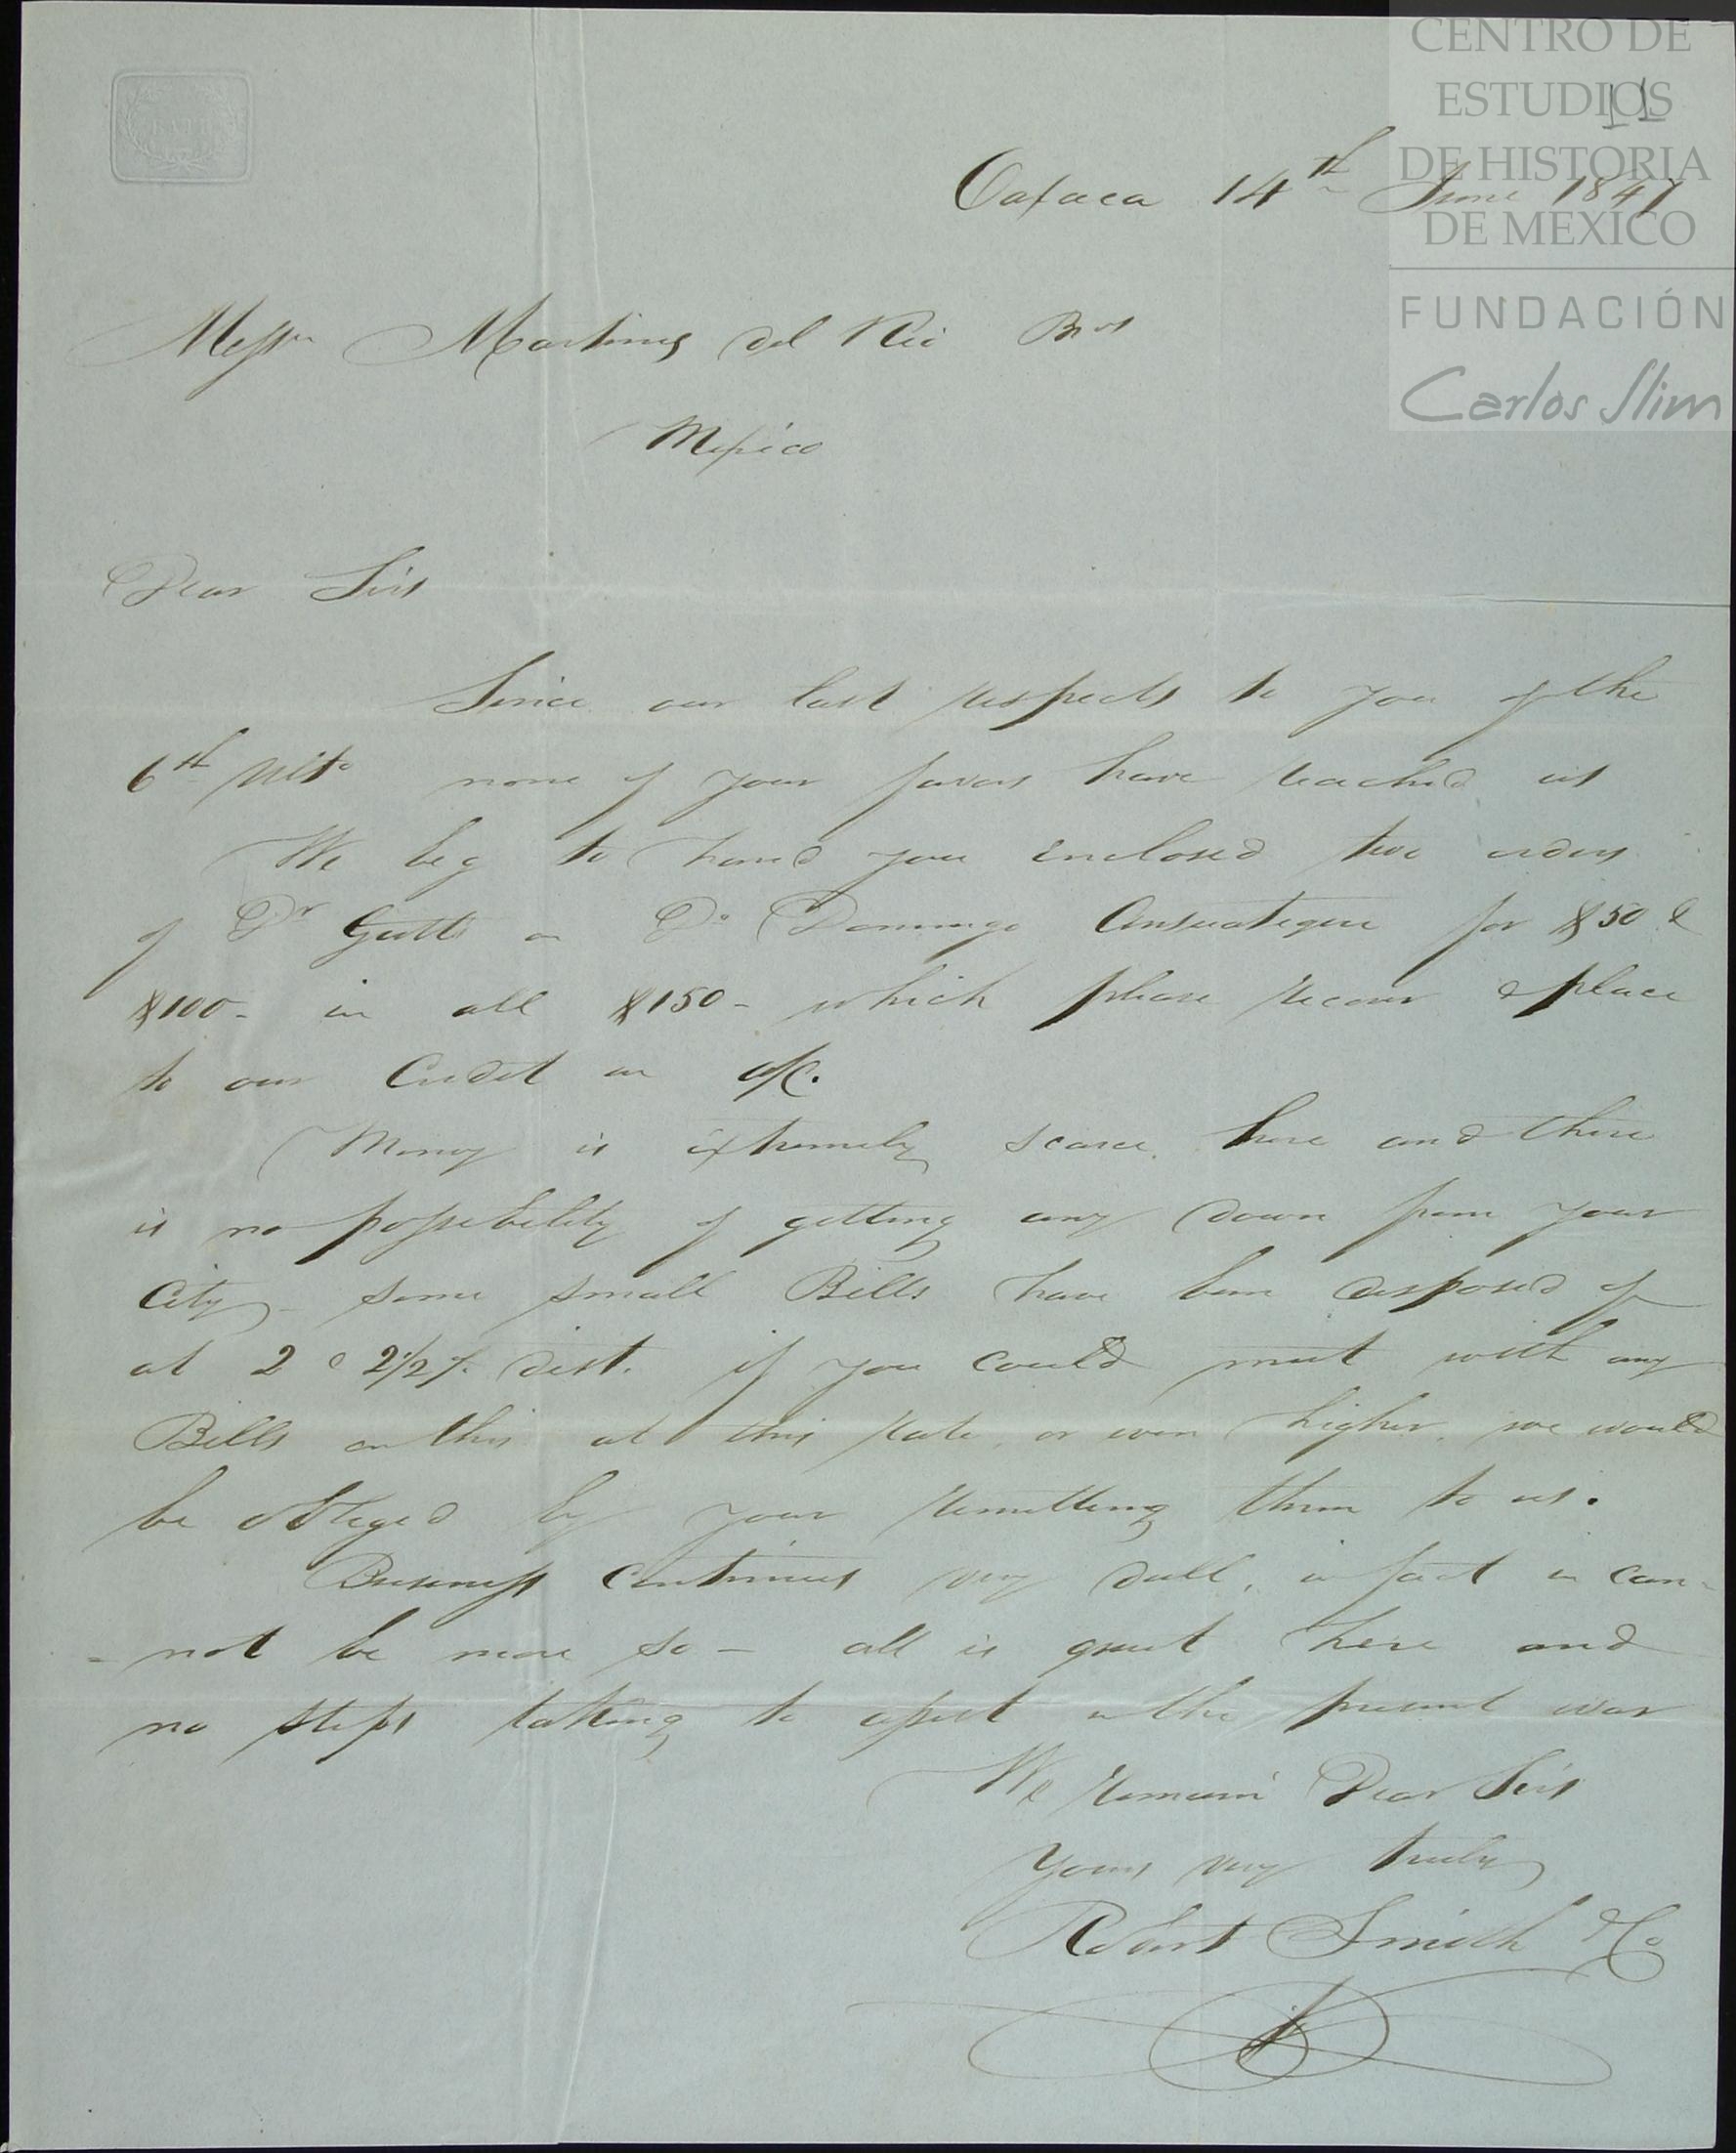 CENTRO DE
ESTUDIOS
DE HISTORIA
DE MEXICO
FUNDACIÓN
Carlos Slim
11
BATH
Oaxaca 14th June 1847
Messrs Martinez del Rio Bros
Mexico
Dear Sirs
Since our last respects to you of the
6th Ulto none of your favors have reached us
We beg to hand you enclosed two orders
of Dr on Dn Domingo Ansuategui for $50 &
$100- in all $150- which please recover & place
to our Credit in a/c.
Money is extremely scarce here and there
is no possibility of getting any down from your
City - some small Bills have been disposed of
at 2 @ 2 1/2 % dist. if you could meet with any
Bills on this at this rate, or even higher, we would
be obliged by your remitting them to us.
Business continues very dull, in fact in can-
-not be more so - all is quiet here and
no steps taking to assist in the present war
We remain Dear Sirs
Yours very truly
Robert Smith & Co